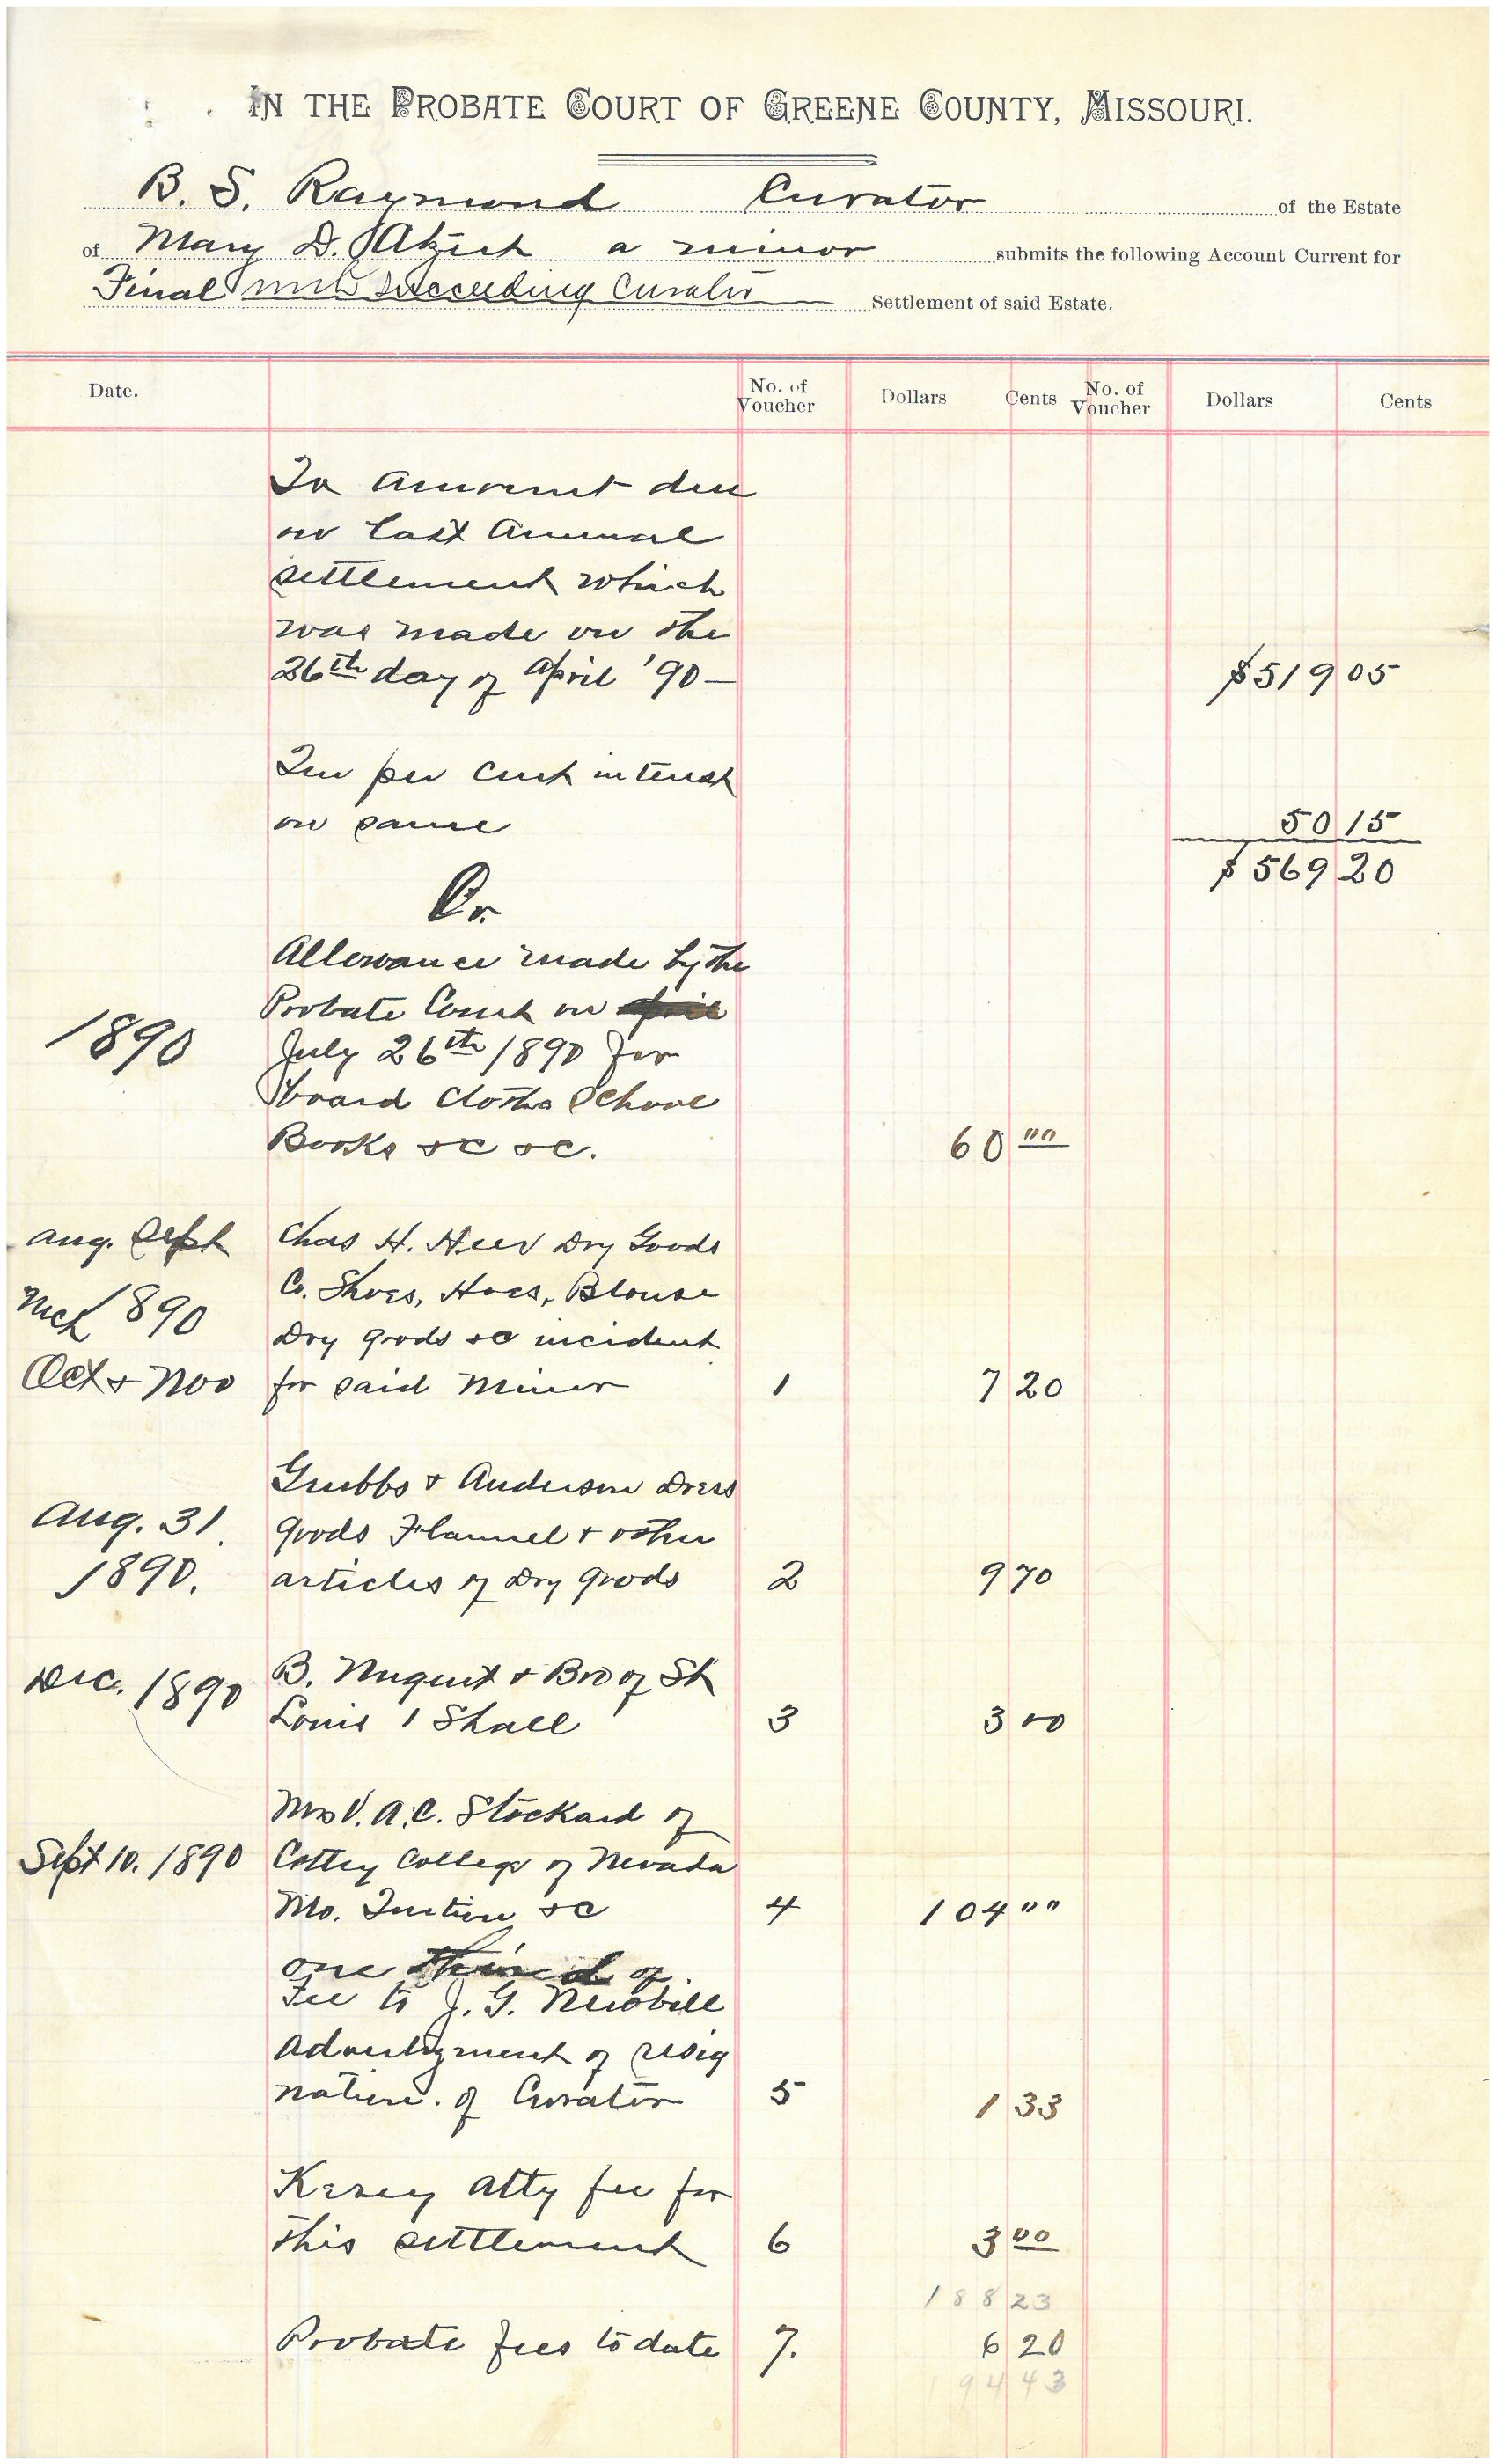 IN THE PROBATE COURT OF GREENE COUNTY, MISSOURI.
B. S. Raymond Curator of the Estate
of Mary D. a minor submits the following Account Current for
Final with Succeeding Curator Settlement of said Estate.
Date. No. of Voucher Dollars Cents No. of Voucher Dollars Cents
To amount due
on last annual
settlement which
was made on the
26th day of April '90 — $519 05
Ten per cent interest
on same 50 15
$569 20
Cr.
Allowance made by the
Probate Court on
1890 July 26th 1890 for
board clothes School
Books &c &c. 60 00
Aug. Sept Chas H. Heer Dry Goods
Mch 1890 Co. Shoes, Hoes, Blouse
Dry goods &c incident
Oct & Nov for said Minor 1 7 20
Grubbs & Anderson Dress
Aug. 31. goods Flannel & other
1890. articles of Dry goods 2 9 70
Dec. 1890 B. Nugent & Bro of St
Louis 1 Shall 3 3 00
Mrs V. A. C. Stockard of
Sept 10. 1890 Cottey College of Nevada
Mo. Tuition &c 4 104 00
one third of
Fee to J. G. Newbill
of resig
nation. of Curator 5 1 33
Kersey atty fee for
this settlement 6 3 00
188 23
Probate fees to date 7. 6 20
194 43